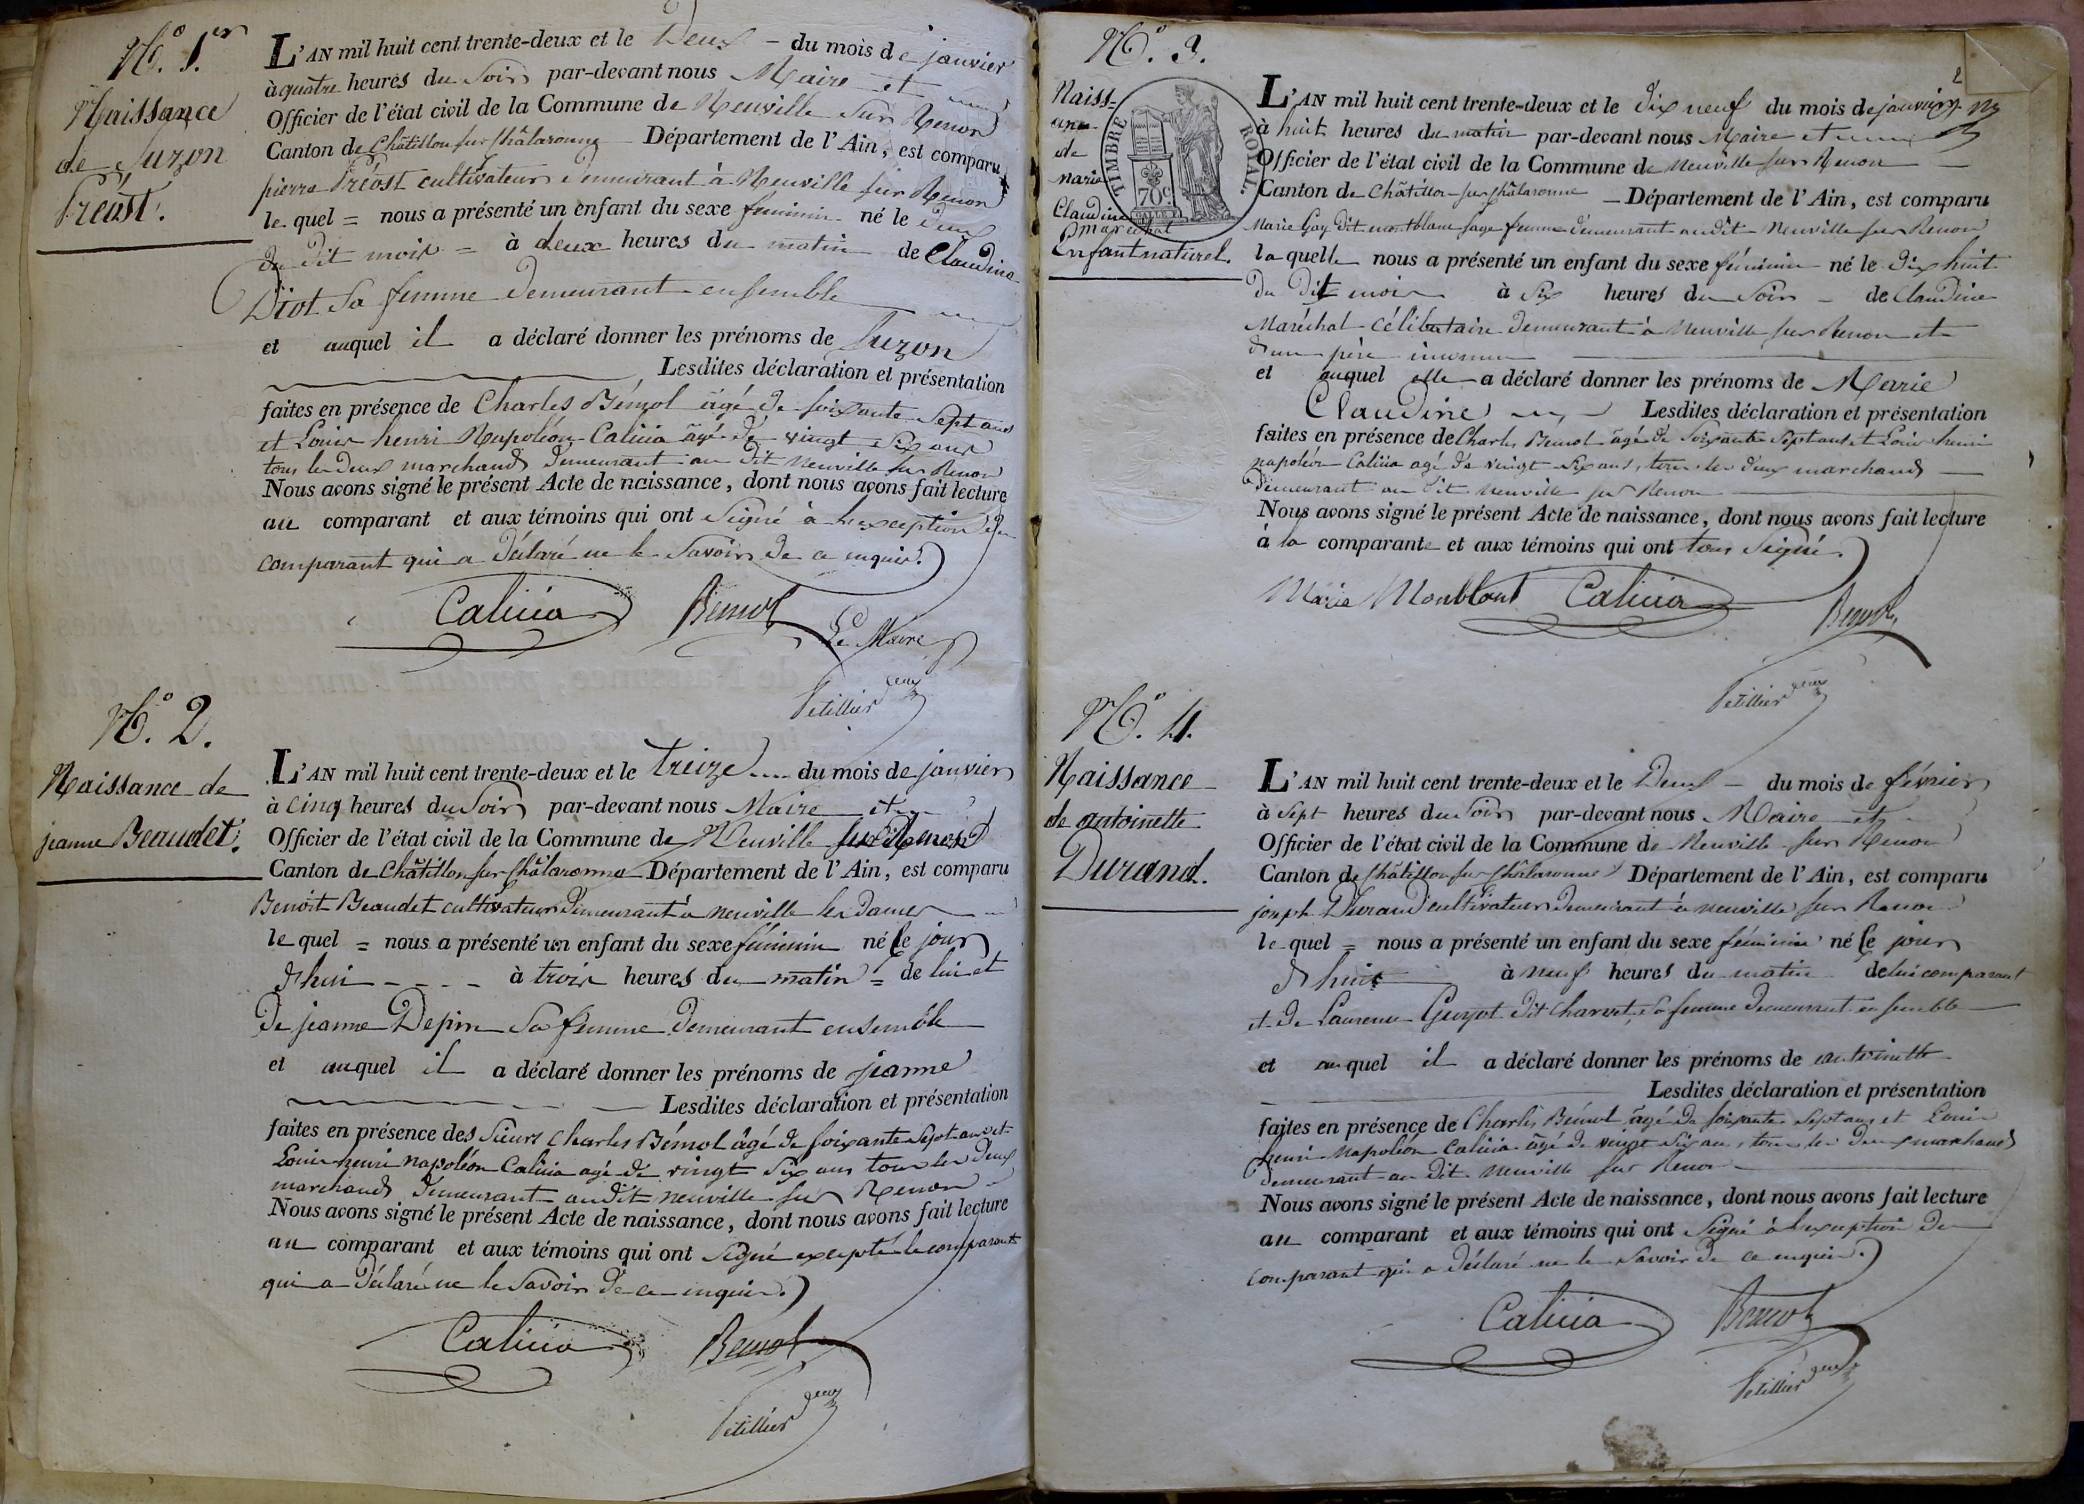 N.o 1.er
Naissance
de Suzon
Préost.
L'AN mil huit cent trente-deux et le Deux - du mois de janvier
à quatre heures du Soir par-devant nous Maire et
Officier de l'état civil de la Commune de Neuville Sur Renon
Canton de Châtillon sur Châlaronne Département de l'Ain, est comparu
pierre Préost cultivateur demeurant à Neuville sur Renon
le quel = nous a présenté un enfant du sexe féminin né le deux
du dit mois = à deux heures du matin de Claudine
Diot Sa femme demeurant ensemble
et auquel il a déclaré donner les prénoms de Suzon
Lesdites déclaration et présentation
faites en présence de Charles Bémol âgé de soixante Sept ans
et Louis henri Napoléon Calicia âgé de vingt Six ans
tous les Deux marchands demeurant au dit Neuville sur Renon
Nous avons signé le présent Acte de naissance, dont nous avons fait lecture
au comparant et aux témoins qui ont Signé à l'exception du
comparant qui a déclaré ne le Savoir de ce enquis.
Calicia Bemol
Le Maire
Petillier
N.o 2.
Naissance de
jeanne Beaudet.
L'AN mil huit cent trente-deux et le treize .... du mois de janvier
à cinq heures du Soir par-devant nous Maire et
Officier de l'état civil de la Commune de Neuville sur Renon
Canton de Châtillon sur Châlaronne Département de l'Ain, est comparu
Benoit Beaudet cultivateur demeurant à neuville les dames
le quel = nous a présenté un enfant du sexe féminin né ce jour
d'hui - - - - à trois heures du matin = de lui et
de jeanne Depin Sa femme demeurant ensemble
et auquel il a déclaré donner les prénoms de jeanne
Lesdites déclaration et présentation
faites en présence des Sieurs Charles Bémol âgé de soixante Sept ans et
Louis henri napoléon Calicia agé de vingt Six ans tous les deux
marchands demeurant audit neuville sur Renon
Nous avons signé le présent Acte de naissance, dont nous avons fait lecture
au comparant et aux témoins qui ont Signé excepté le comparant
qui a déclaré ne le Savoir de ce enquis.
Calicia Bemol
Petillier
2
N.o 3.
Naiss-
ance
de
marie
Claudine
maréchal
Enfant naturel.
TIMBRE ROYAL.
70 c
L'AN mil huit cent trente-deux et le dix neuf du mois de janvier
à huit heures du matin par-devant nous Maire et
Officier de l'état civil de la Commune de Neuville sur Renon
Canton de Châtillon sur Châlaronne Département de l'Ain, est comparu
Marie Gay dit montblanc sage femme demeurant audit Neuville sur Renon
la quelle nous a présenté un enfant du sexe féminin né le dix huit
du dit mois à Six heures du Soir - de Claudine
Maréchal célibataire demeurant à Neuville sur Renon et
d'un père inconnu
et auquel elle a déclaré donner les prénoms de Marie
Claudine Lesdites déclaration et présentation
faites en présence de Charles Bémol âgé de Soixante Sept ans et Louis henri
napoléon Calicia agé de vingt Six ans, tous les deux marchands
demeurant au dit neuville sur Renon
Nous avons signé le présent Acte de naissance, dont nous avons fait lecture
à la comparante et aux témoins qui ont tous Signé.
Marie Monblout Calicia Bemol
Petillier
N.o 4.
Naissance
de antoinette
Durand.
L'AN mil huit cent trente-deux et le Deux - du mois de février
à Sept heures du Soir par-devant nous Maire et
Officier de l'état civil de la Commune de Neuville sur Renon
Canton de Châtillon sur Châlaronne Département de l'Ain, est comparu
joseph Durand cultivateur demeurant à neuville sur Renon
le quel = nous a présenté un enfant du sexe féminin né ce jour
d'hui à neuf heures du matin de lui comparant
et de Laurence Guyot dit Charvet, Sa femme demeurant ensemble
et auquel il a déclaré donner les prénoms de antoinette
Lesdites déclaration et présentation
faites en présence de Charles Bémol, âgé de soixante Sept ans et Louis
henri Napoléon Calicia âgé de vingt Six ans, tous les deux marchands
demeurant au dit neuville sur Renon
Nous avons signé le présent Acte de naissance, dont nous avons fait lecture
au comparant et aux témoins qui ont Signé à l'exception du
comparant qui a déclaré ne le Savoir de ce enquis.
Calicia Bemol
Petillier